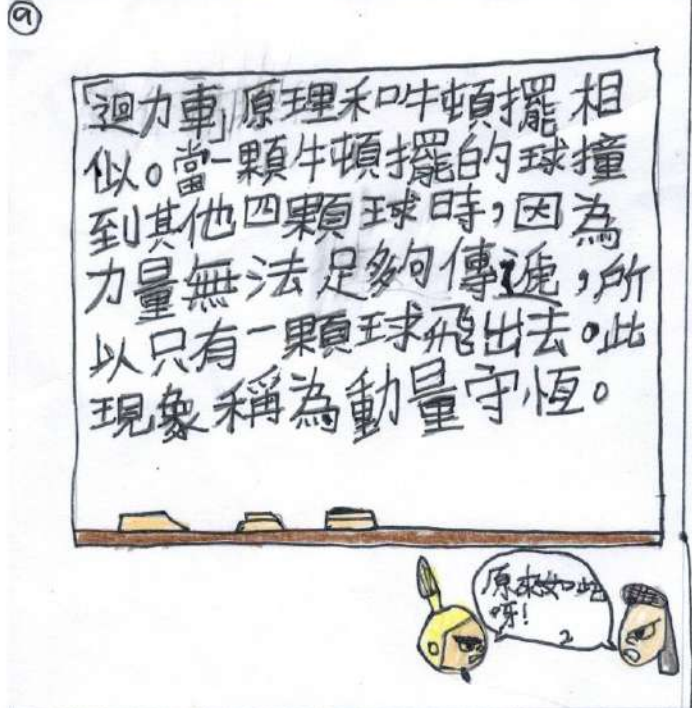 9
「迴力車」原理和牛頓擺相
似。當一顆牛頓擺的球撞
到其他四顆球時,因為
力量無法足夠傳遞,所
以只有一顆球飛出去。此
現象稱為動量守恆。
原來如此
呀!
2